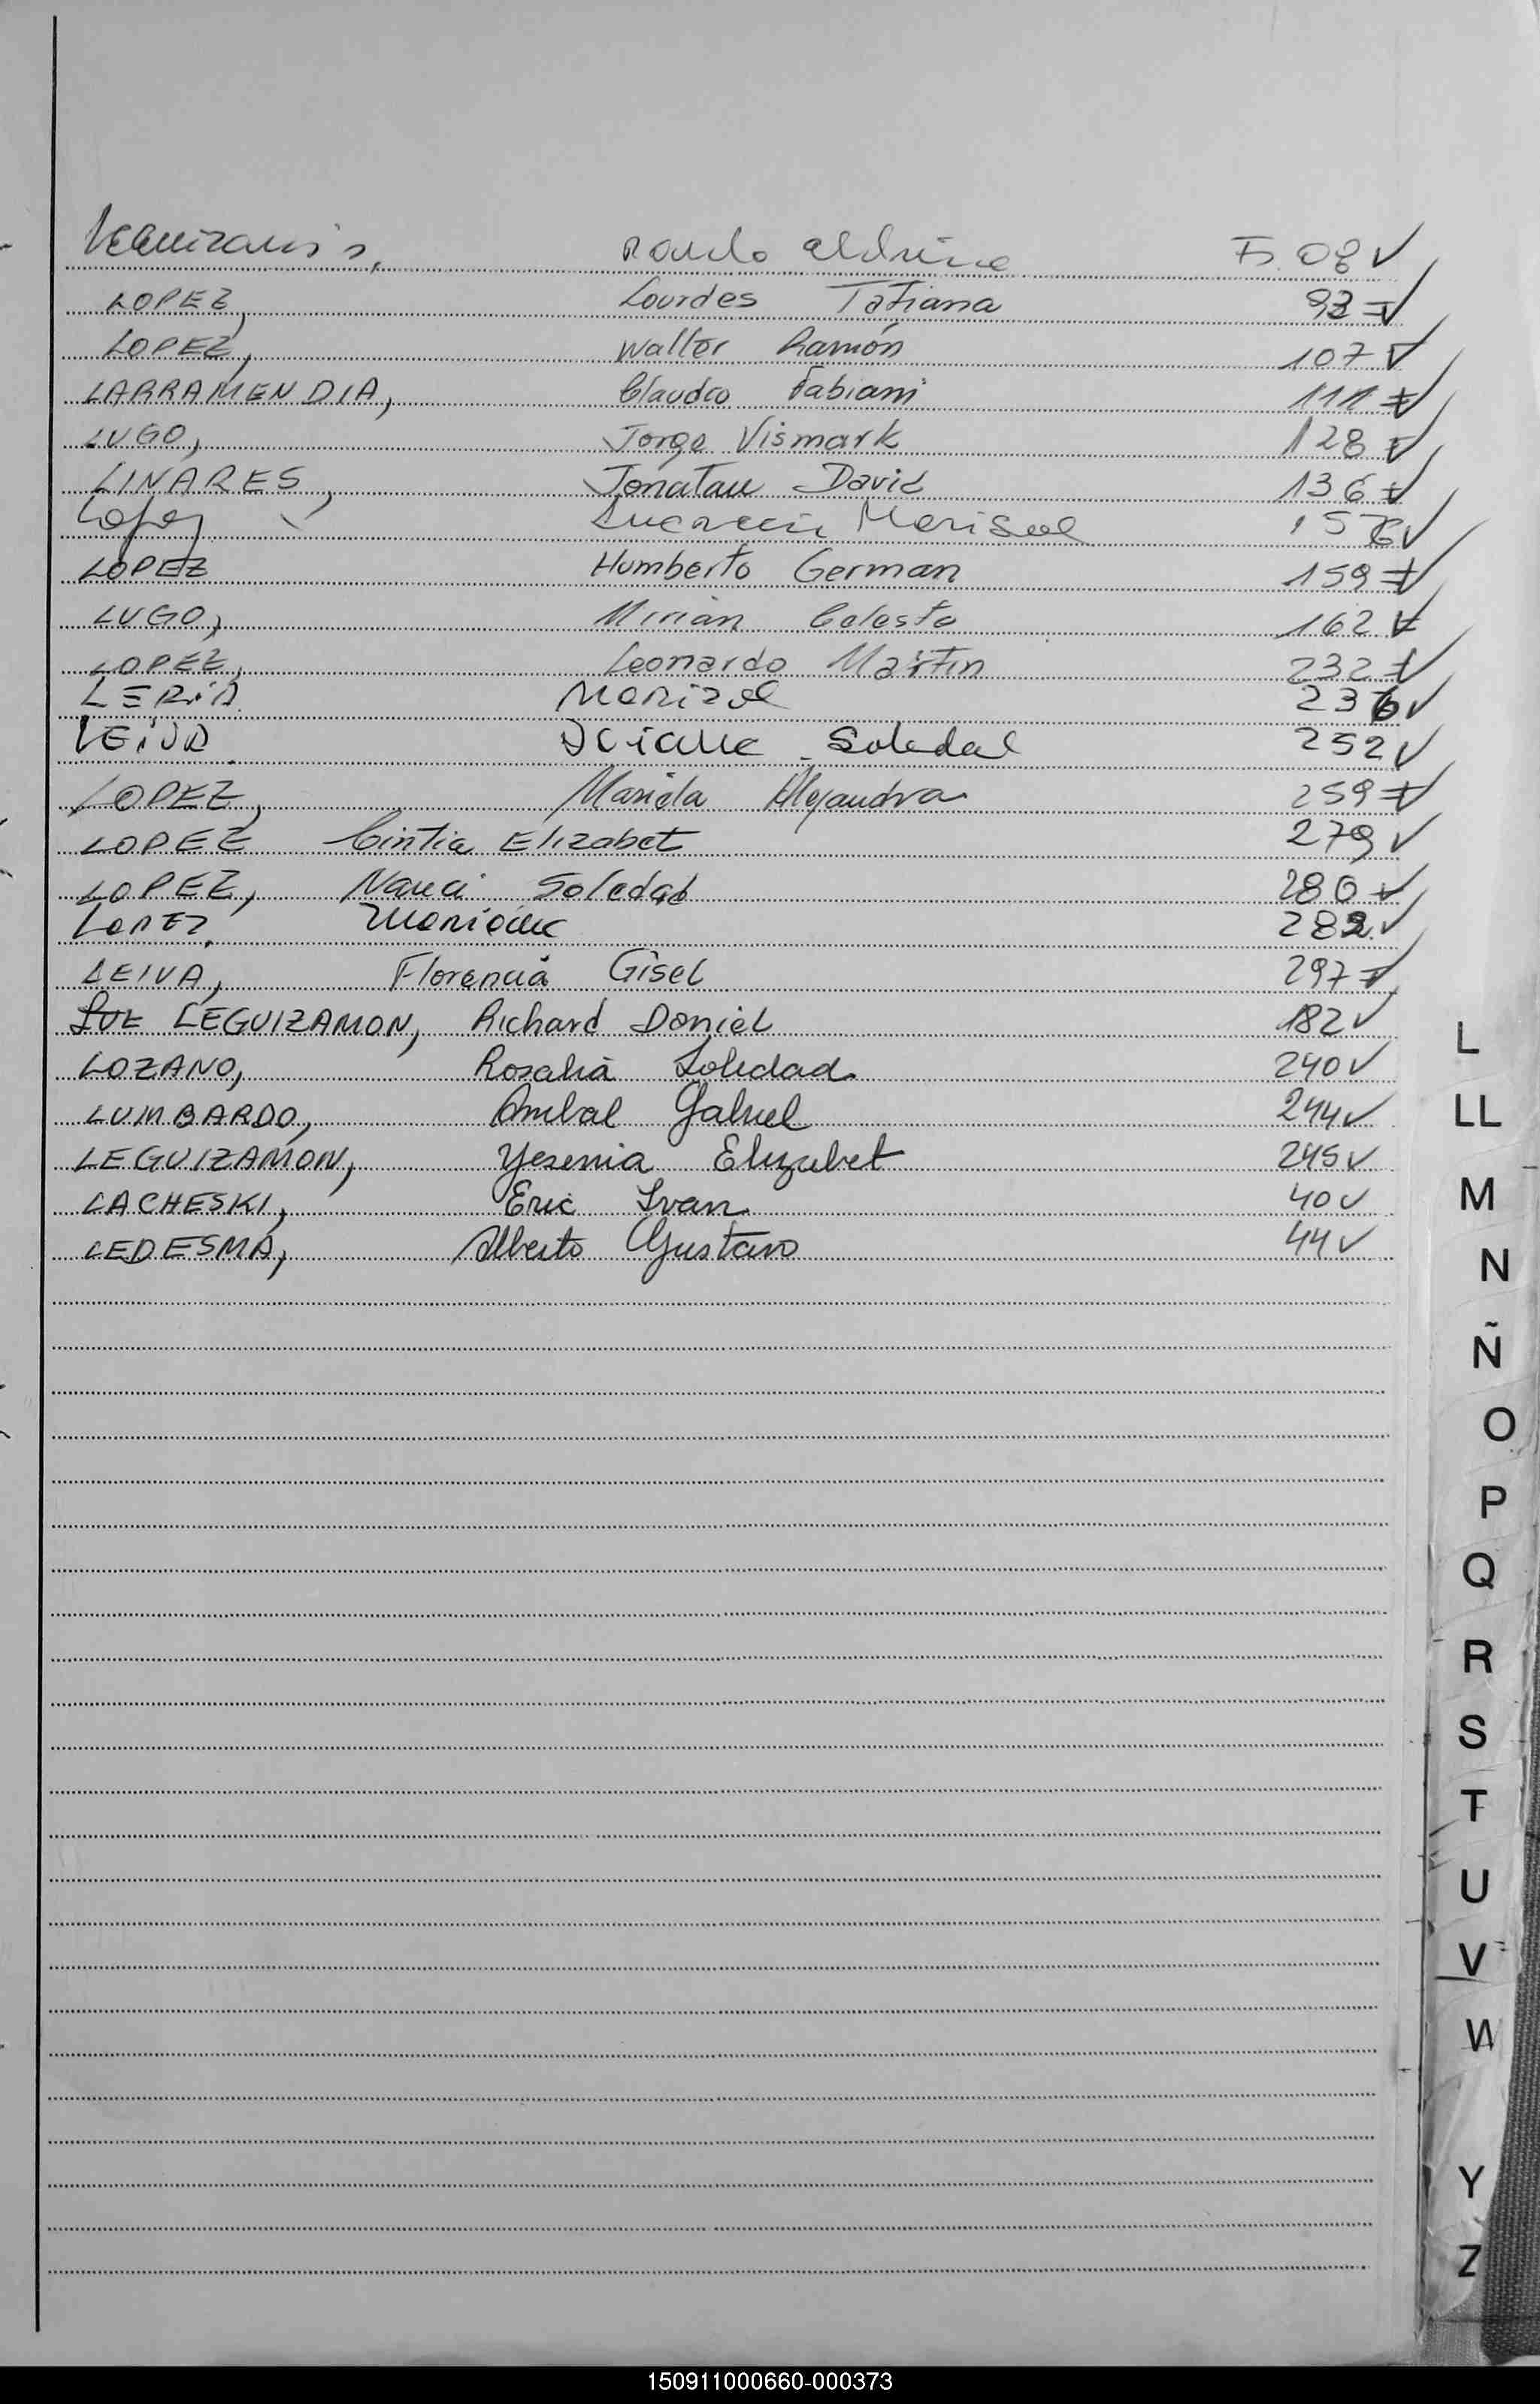 Leguizamon, Aldrine F. 08 ✓
LOPEZ, Lourdes Tatiana 93 ✓
LOPEZ, Walter Ramón 107 ✓
LARRAMENDIA, Claudio Fabiani 111 ✓
LUGO, Jorge Vismark 128 ✓
LINARES, Jonatan David 136 ✓
Lopez Marisol 156 ✓
LOPEZ Humberto German 159 ✓
LUGO, Mirian Celeste 162 ✓
LOPEZ, Leonardo Martin 232 ✓
Marizol 236 ✓
LEIVA Soledad 252 ✓
LOPEZ, Mariela Alejandra 259 ✓
LOPEZ Cintia Elizabet 279 ✓
LOPEZ, Nanci Soledad 280 ✓
LOPEZ, 282 ✓
LEIVA, Florencia Gisel 297 ✓
LEGUIZAMON, Richard Daniel 182 ✓
LOZANO, Rosalia Soledad 240 ✓
LUMBARDO, Anibal Gabriel 244 ✓
LEGUIZAMON, Yesenia Elizabet 245 ✓
LACHESKI, Eric Ivan 40 ✓
LEDESMA, Alberto Gustavo 44 ✓
L
LL
M
N
Ñ
O
P
Q
R
S
T
U
V
W
Y
Z
150911000660-000373